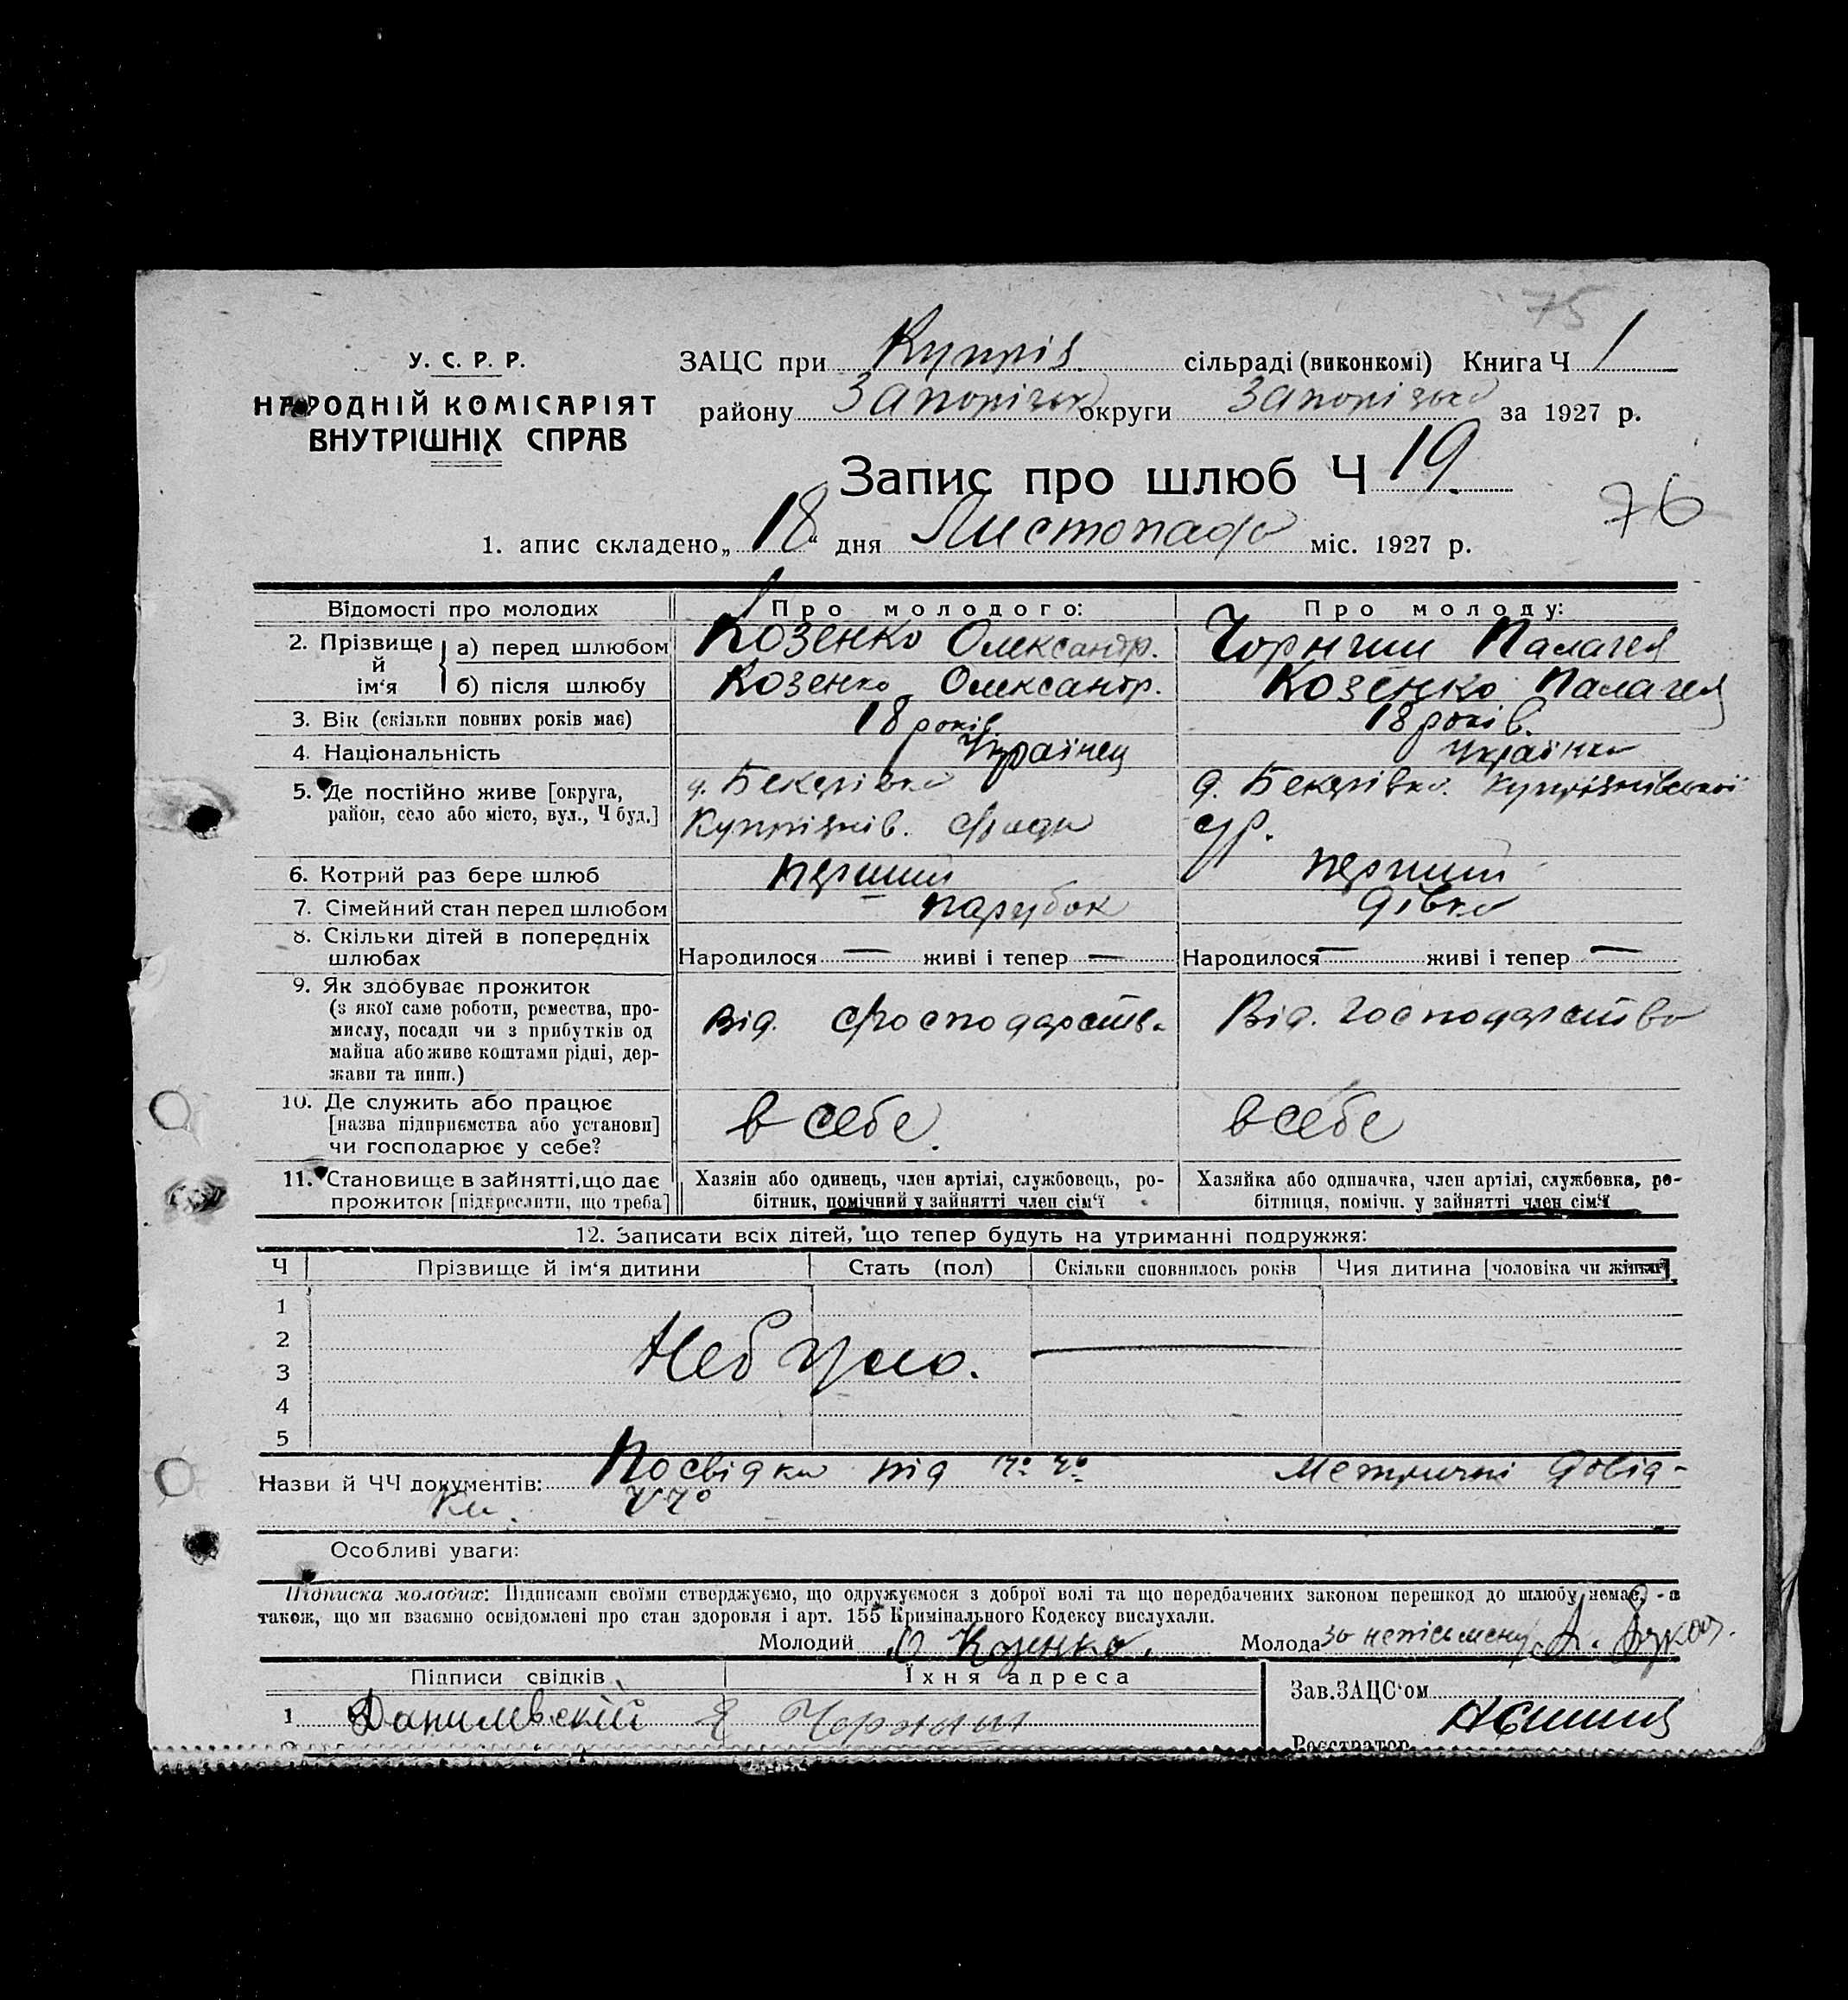 75
У. С. Р. Р.
НАРОДНІЙ КОМІСАРІЯТ
ВНУТРІШНІХ СПРАВ
ЗАЦС при Купріян сільраді (виконкомі) Книга Ч 1
району Запорізьк округи Запорізька за 1927 р.
Запис про шлюб Ч 19
76
1. апис складено „18“ дня Листопада міс. 1927 р.
Відомості про молодих Про молодого: Про молоду:
2. Прізвище й ім‘я а) перед шлюбом Козенко Олександр. Палагея
б) після шлюбу Козенко Олександр. Козенко Палагея
3. Вік (скільки повних років має) 18 років 18 років.
4. Національність Українец Українка
5. Де постійно живе [округа, район, село або місто, вул., Ч буд.]
д. Бекарівка Купріянів. с/ради
д. Бекарівка. Купріянівської с/р.
6. Котрий раз бере шлюб перший перший
7. Сімейний стан перед шлюбом парубок дівка
8. Скільки дітей в попередніх шлюбах Народилося — живі і тепер — Народилося — живі і тепер —
9. Як здобуває прожиток
(з якої саме роботи, ремества, про-
мислу, посади чи з прибутків од
майна або живе коштами рідні, дер-
жави та инш.)
Від. господарства Від. господарства
10. Де служить або працює
[назва підприємства або установи]
чи господарює у себе?
в себе. в себе
11. Становище в зайнятті, що дає
прожиток [підкреслити, що треба]
Хазяїн або одинець, член артілі, службовець, ро-
бітник, помічний у зайнятті член сім‘ї
Хазяйка або одиначка, член артілі, службовка, ро-
бітниця, помічн. у зайнятті член сім‘ї
12. Записати всіх дітей, що тепер будуть на утриманні подружжя:
Ч Прізвище й ім‘я дитини Стать (пол) Скільки сповнилось років Чия дитина [чоловіка чи жінки]
1
2
3
4
5
Небуло. —
Назви й ЧЧ документів: Посвідки під Метричні довід-
ки.
Особливі уваги:
Підписка молодих: Підписами своїми стверджуємо, що одружуємося з доброї волі та що передбачених законом перешкод до шлюбу немає, - а
також, що ми взаємно освідомлені про стан здоров‘я і арт. 155 Кримінального Кодексу вислухали.
Молодий О Козенко. Молода за неписьмену
Підписи свідків Їхня адреса
1 Данилевский
Зав. ЗАЦС‘ом
Реєстратор